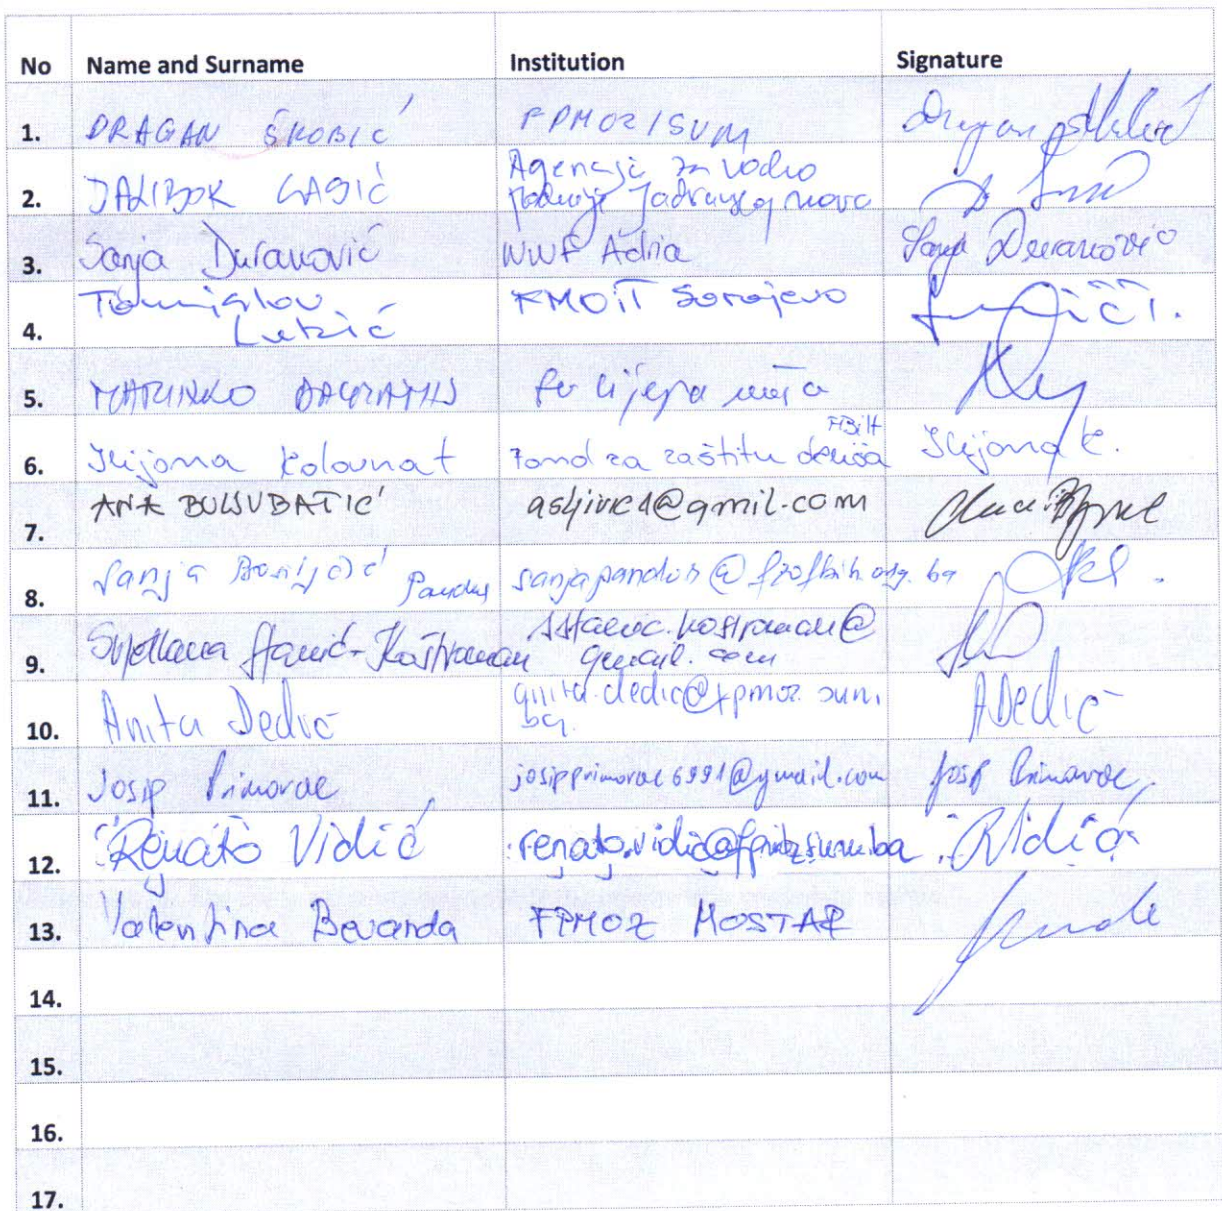 No Name and Surname Institution Signature
1. DRAGAN ŠKOBIĆ FPMOZ/SUM Dragan
2. DALIBOR LASIĆ Agencija za vodno
područje Jadranskog mora
3. Sanja Duranović WWF Adria Sanja Duranović
4. Tomislav
Lukić FMOIT Sarajevo
5. MARINKO Eu lijepa
6. Ilijana Kolovrat Fond za zaštitu okoliša FBiH Ilijana K.
7. ANA
8. Sanja Pandur @fzofbih.org.ba
9. Svjetlana Stanić-Koštroman sstanic.kostroman@
gmail.com
10. Anita Dedić anita.dedic@fpmoz.sum.
ba. ADedić
11. Josip Primorac josipprimorac6991@gmail.com Josip Primorac
12. Renato Vidić renato.vidic@fpmoz.sum.ba RVidić
13. Valentina Bevanda FPMOZ MOSTAR
14.
15.
16.
17.